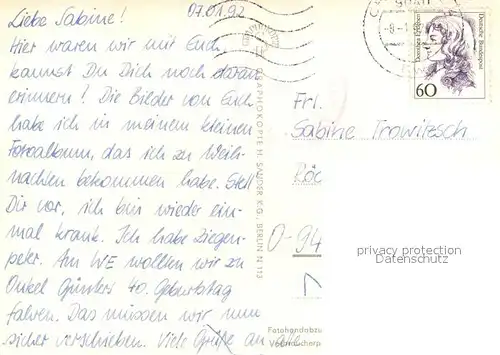 07.01.92
Liebe Sabine!
Hier waren wir mit Euch,
kannst Du Dich noch daran
erinnern? Die Bilder von Euch
habe ich in meinem kleinen
Fotoalbum, das ich zu Weih-
nachten bekommen habe. Stell
Dir vor, ich bin wieder ein-
mal krank. Ich habe Ziegen-
peter. Am WE wollten wir zu
Onkel Günters 40. Geburtstag
fahren. Das müssen wir nun
sicher verschieben. Viele Grüße an alle
Dorothea Erxleben
Deutsche Bundespost
60
Frl.
Sabine Trowitzsch
O-94
privacy protection
Datenschutz
H. SANDER K.G., BERLIN N 113
Fotohandabzu